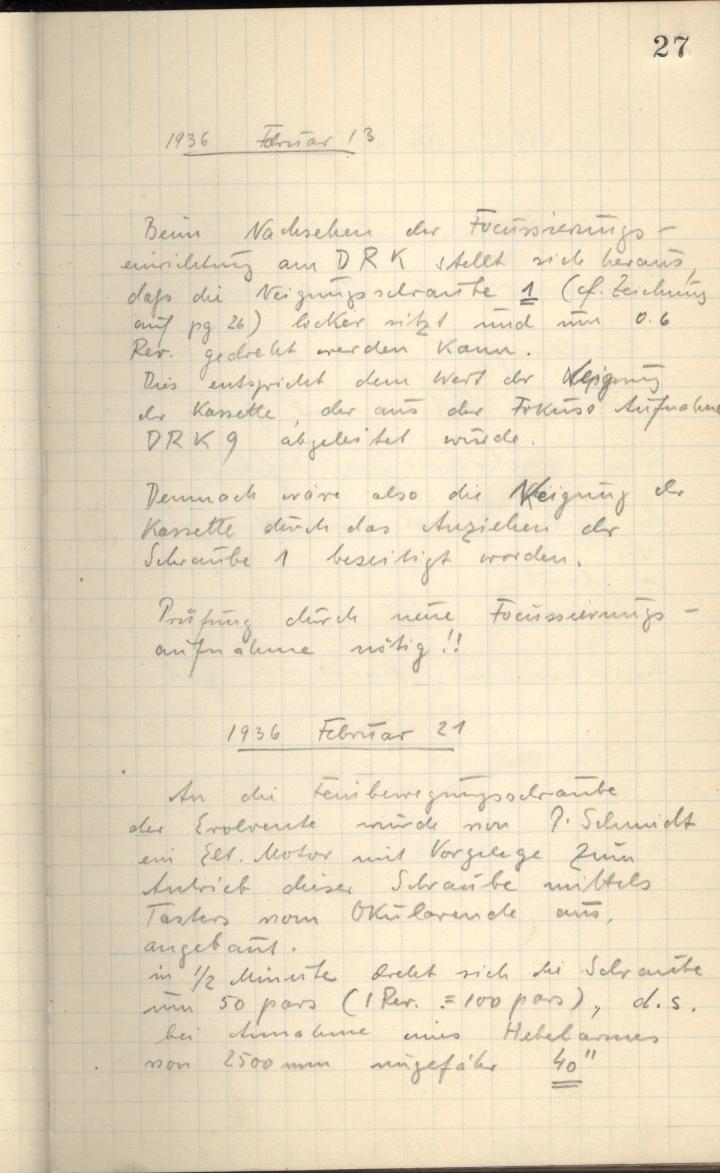 27
1936 Februar 13
Beim Nachsehen der Focussierungs-
einrichtung am DRK stellt sich heraus,
daß die Neigungsschraube 1 (cf. Zeichnung
auf pg 26) locker sitzt und um 0.6
Rev. gedreht werden kann.
Dies entspricht dem Wert der Neigung
der Kassette, der aus der Fokuss Aufnahme
DRK 9 abgeleitet wurde.
Demnach wäre also die Neigung der
Kassette durch das Anziehen der
Schraube 1 beseitigt worden.
Prüfung durch neue Focussierungs-
aufnahme nötig!!
1936 Februar 21
An die Feinbewegungsschraube
der Evolvente wurde von P. Schmidt
ein Elt. Motor mit Vorgelege zum
Antrieb dieser Schraube mittels
Tasters vom Okularende aus,
angebaut.
in 1/2 Minute dreht sich die Schraube
um 50 pars (1 Rev. = 100 pars), d.s.
bei Annahme eines Hebelarmes
von 2500 mm ungefähr 40"